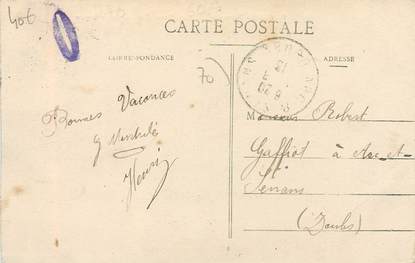 40€
CARTE POSTALE
CORRESPONDANCE
ADRESSE
70)
Bonnes Vacances
Henri
Monsieur Robert
Gaffiot à Arc-et-
Senans
(Doubs)